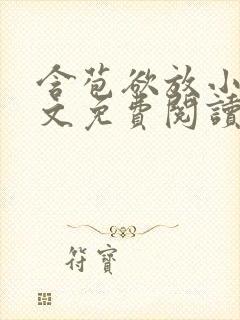 含苞欲放小
文免費閱讀
符寶